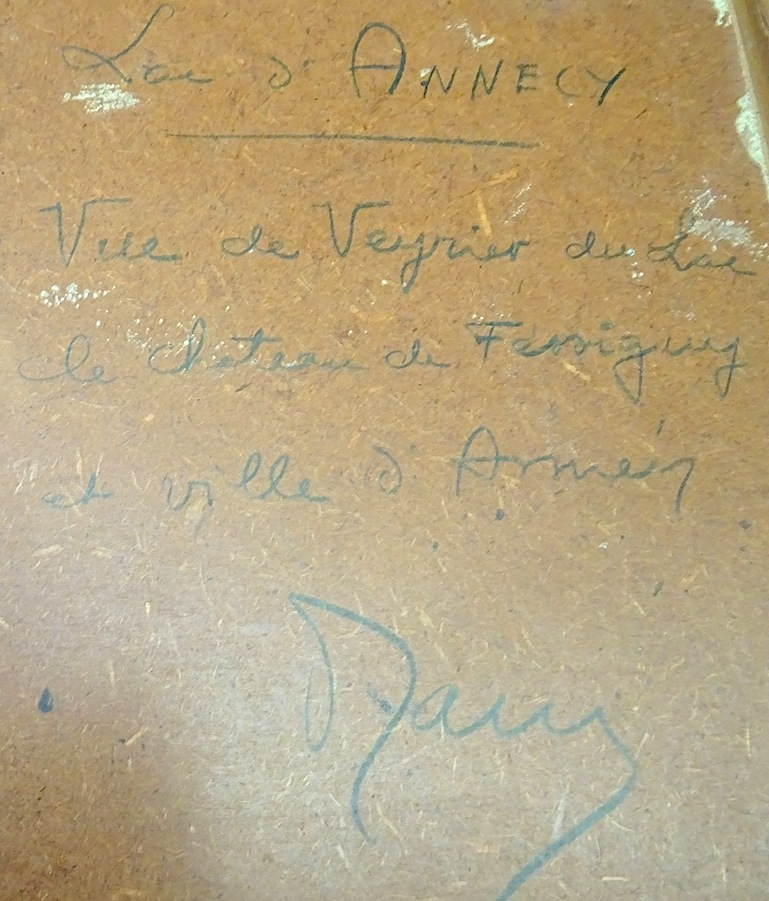 Lac d'ANNECY
Vue de Veyrier du Lac
le chateau de Fessigny
et ville d'Annecy